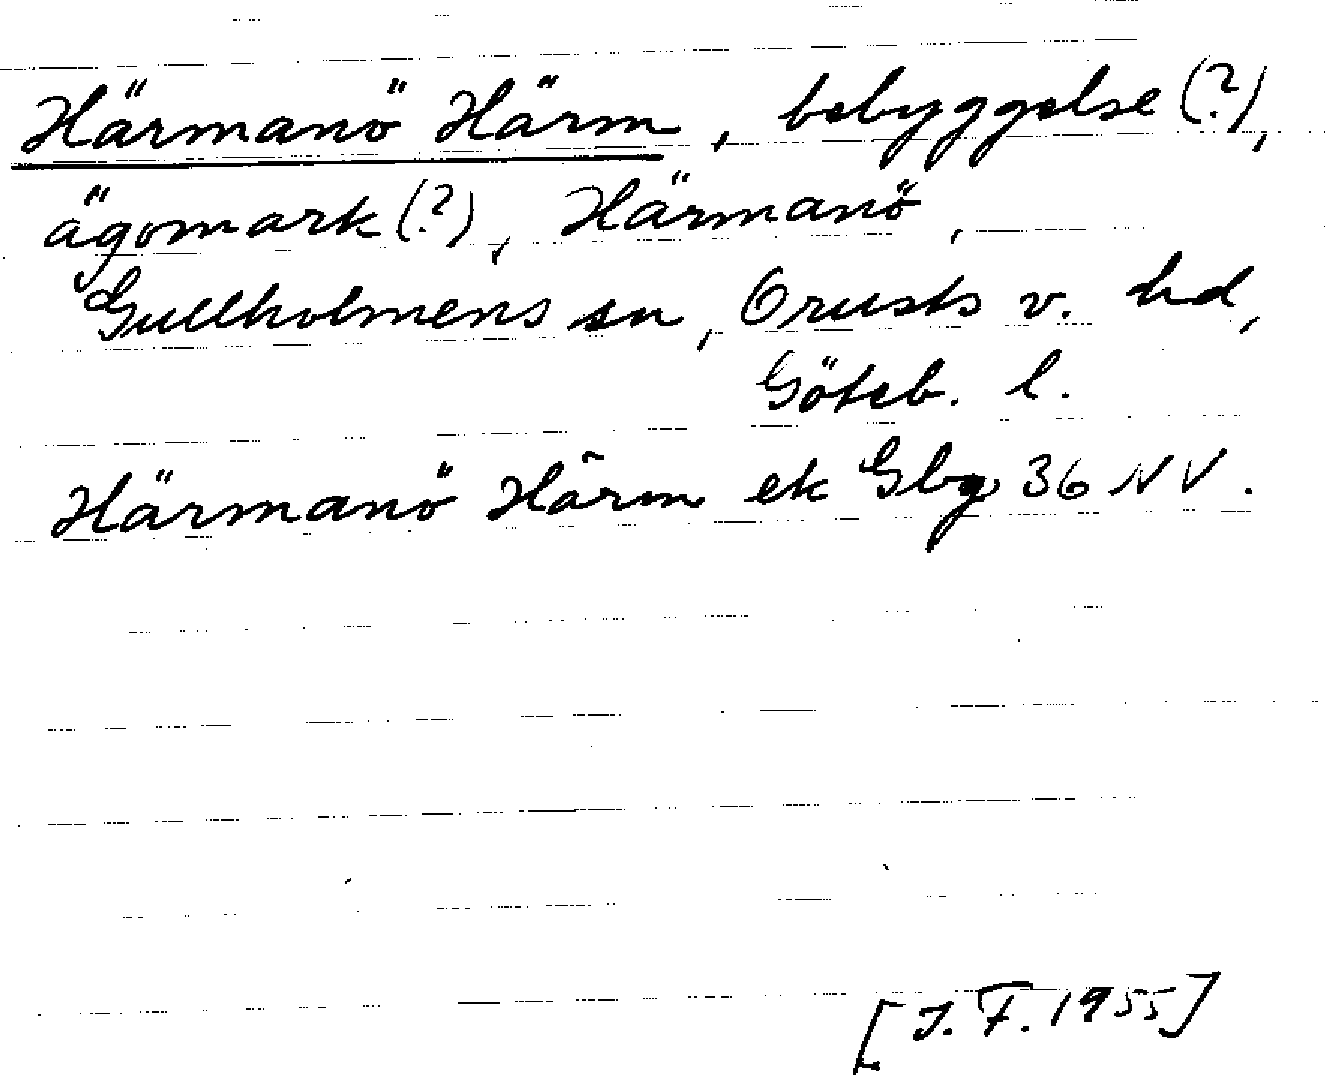 Härmanö Härm, bebyggelse (?),
ägomark (?), Härmanö,
Gullholmens sn, Orusts v. hd,
Göteb. l.
Härmanö Härm ek Gbg 36 NV.
[J. F. 1955]